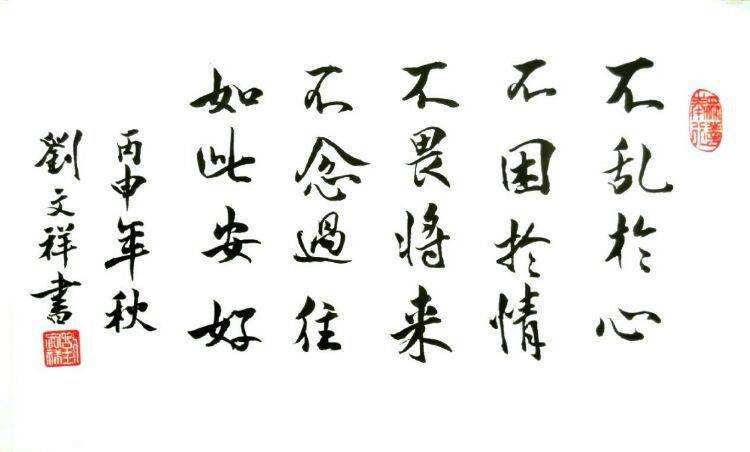 不乱於心
不困於情
不畏将来
不念過往
如此安好
丙申年秋
劉文祥書